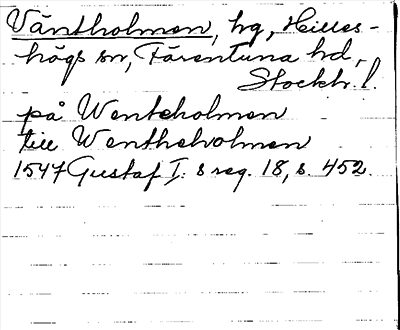 Väntholmen, hg, Hilles-
högs sn, Färentuna hd,
Stockh. l.
på Wenteholmen
till Wentheholmen
1547 Gustaf I:s reg. 18, s. 452.